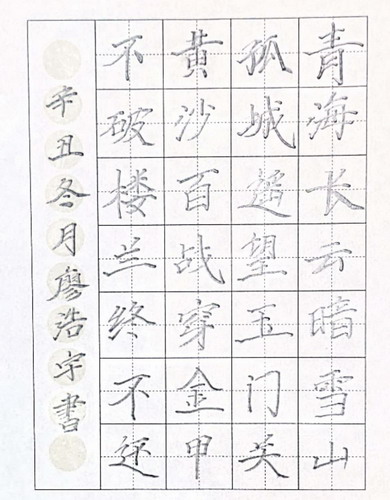 青海长云暗雪山
孤城遥望玉门关
黄沙百战穿金甲
不破楼兰终不还
辛丑冬月廖浩宇書